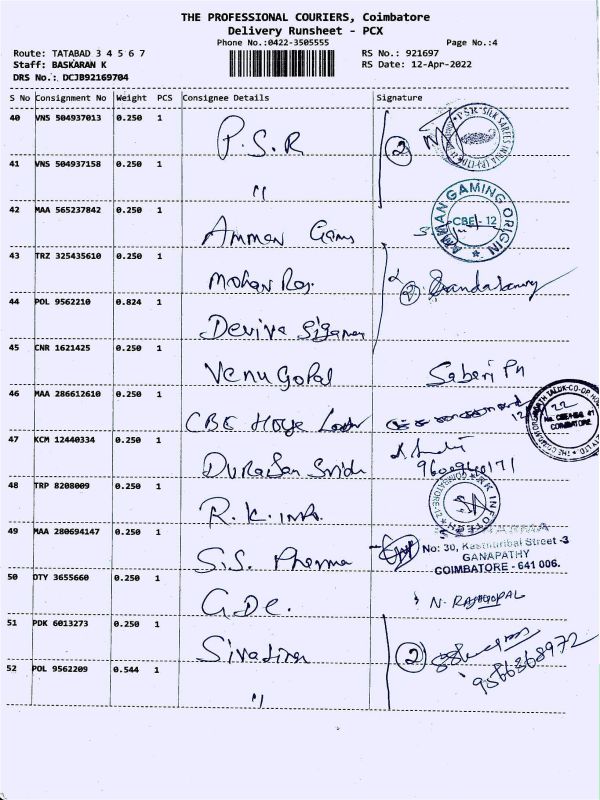 THE PROFESSIONAL COURIERS, Coimbatore
Delivery Runsheet - PCX
Phone No.:0422-3505555 Page No.:4
Route: TATABAD 3 4 5 6 7 RS No.: 921697
Staff: BASKARAN K RS Date: 12-Apr-2022
DRS No.: DCJB92169704
S No Consignment No Weight PCS Consignee Details Signature
40 VNS 504937013 0.250 1 P.S.R 2
41 VNS 504937158 0.250 1 "
42 MAA 565237842 0.250 1 Amman AMMAN GAMING ORIGIN CBE - 12
43 TRZ 325435610 0.250 1 Mohan Raj. 2
44 POL 9562210 0.824 1
45 CNR 1621425 0.250 1 Venu Gopal Saberi
46 MAA 286612610 0.250 1 CBE House COIMBATORE
47 KCM 12440334 0.250 1
48 TRP 8208009 0.250 1 R.K. COIMBATORE
49 MAA 280694147 0.250 1 S.S. Pharma
No: 30, Kasthuribai Street -3
GANAPATHY
COIMBATORE - 641 006.
50 DTY 3655660 0.250 1 N. RAJAGOPAL
51 PDK 6013273 0.250 1 2
52 POL 9562209 0.544 1 " 9566368972